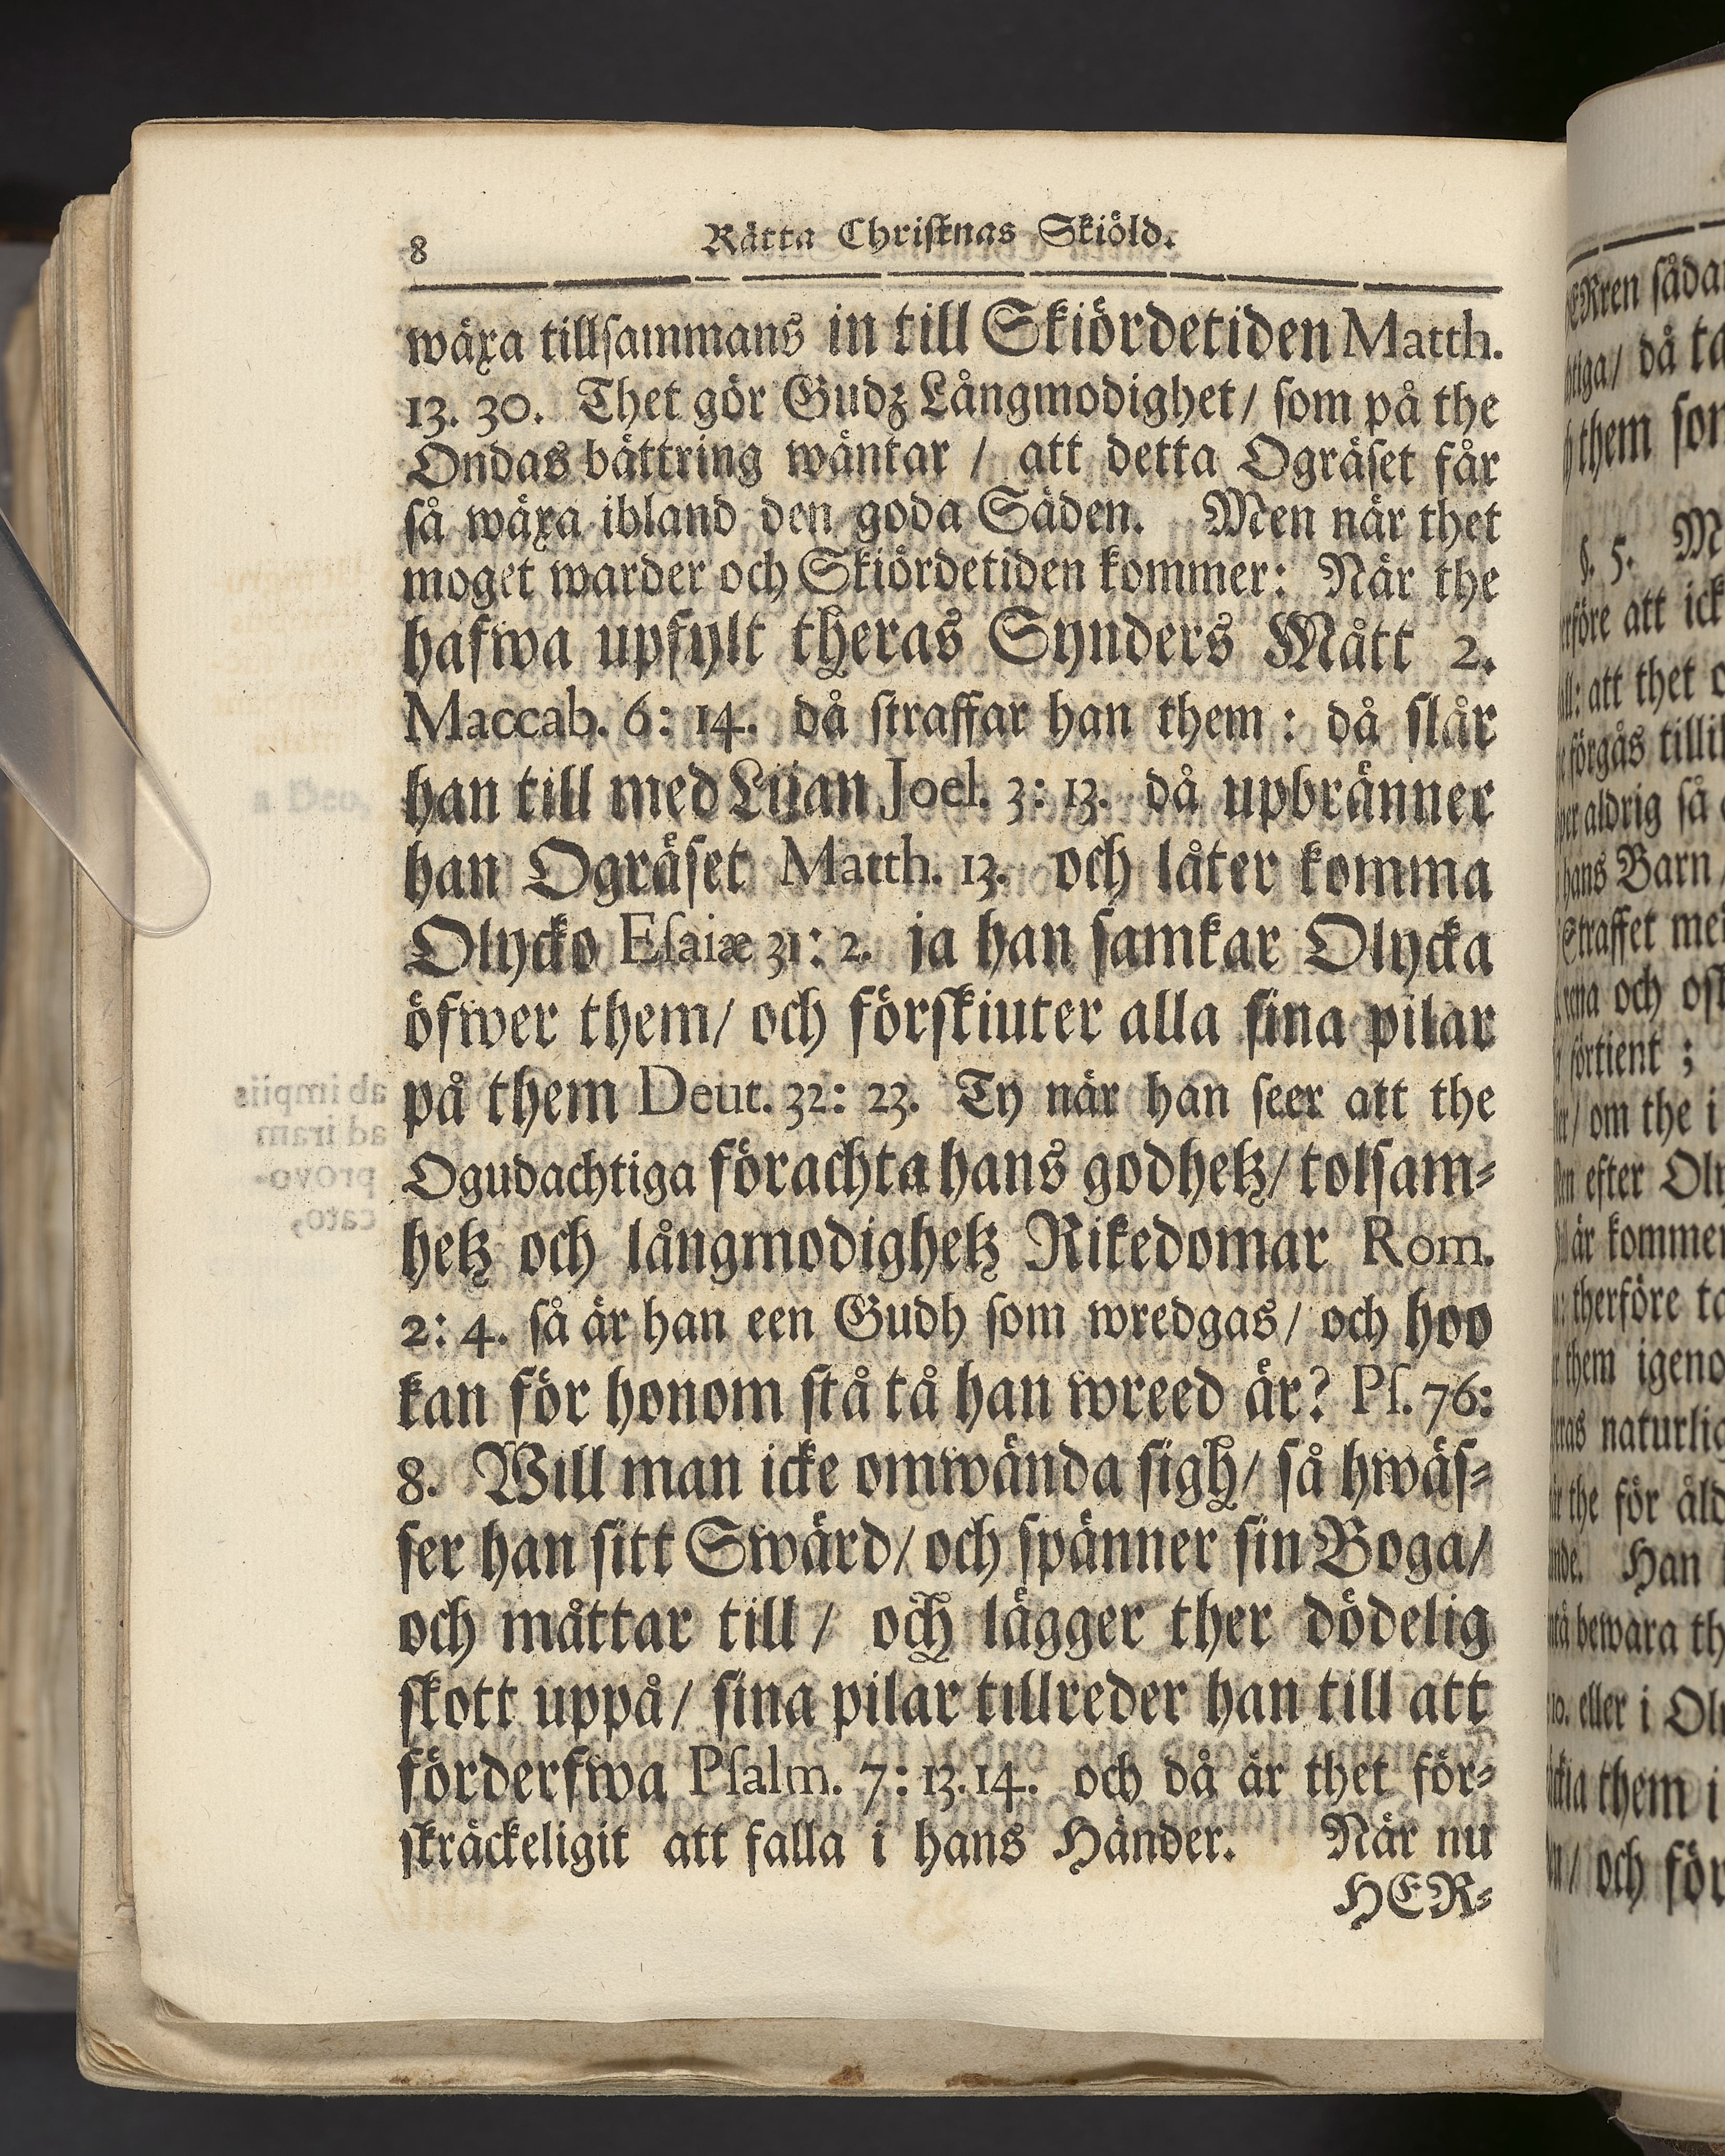 8 Rätta Christnas Skiöld.
wäxa tillsammans in till Skiördetiden Matth.
13. 30. Thet gör Gudz Långmodighet/ som på the
Ondas bättring wäntar / att detta Ogräset får
så wäxa ibland den goda Säden. Men när thet
moget warder och Skiördetiden kommer: När the
hafwa upfylt theras Synders Mått 2.
Maccab. 6: 14. då straffar han them : då slår
han till med Lijan Joel. 3: 13. då upbränner
han Ogräset Matth. 13. och låter komma
Olycko Esaiæ 31: 2. ja han samkar Olycka
öfwer them/ och förskiuter alla sina pilar
på them Deut. 32: 23. Ty när han seer att the
Ogudachtiga förachta hans godhetz/ tolsam-
hetz och långmodighetz Rikedomar Rom.
2: 4. så är han een Gudh som wredgas/ och hoo
kan för honom stå tå han wreed är? Ps. 76:
8. Will man icke omwända sigh/ så hwäs-
ser han sitt Swärd/ och spänner sin Boga/
och måttar till / och lägger ther dödelig
skott uppå/ sina pilar tillreder han till att
förderfwa Psalm. 7: 13. 14. och då är thet för-
skräckeligit att falla i hans Händer. När nu
HER-
ERren
då
them
§. 5.
att
att thet
förgås
aldrig så
hans Barn
Straffet
och
förtient ;
om the i
efter
är
therföre
them
naturlig
the för
Han
bewara
eller i
them i
och